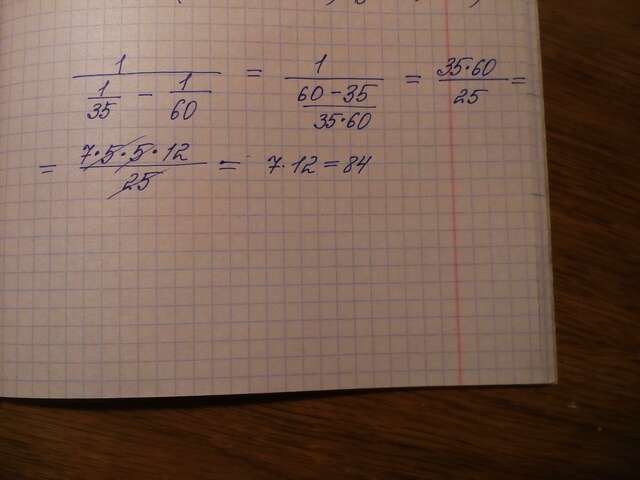 1 / (1/35 − 1/60) = 1 / ((60−35)/(35·60)) = 35·60/25 =
= 7·5·5·12/25 = 7·12=84